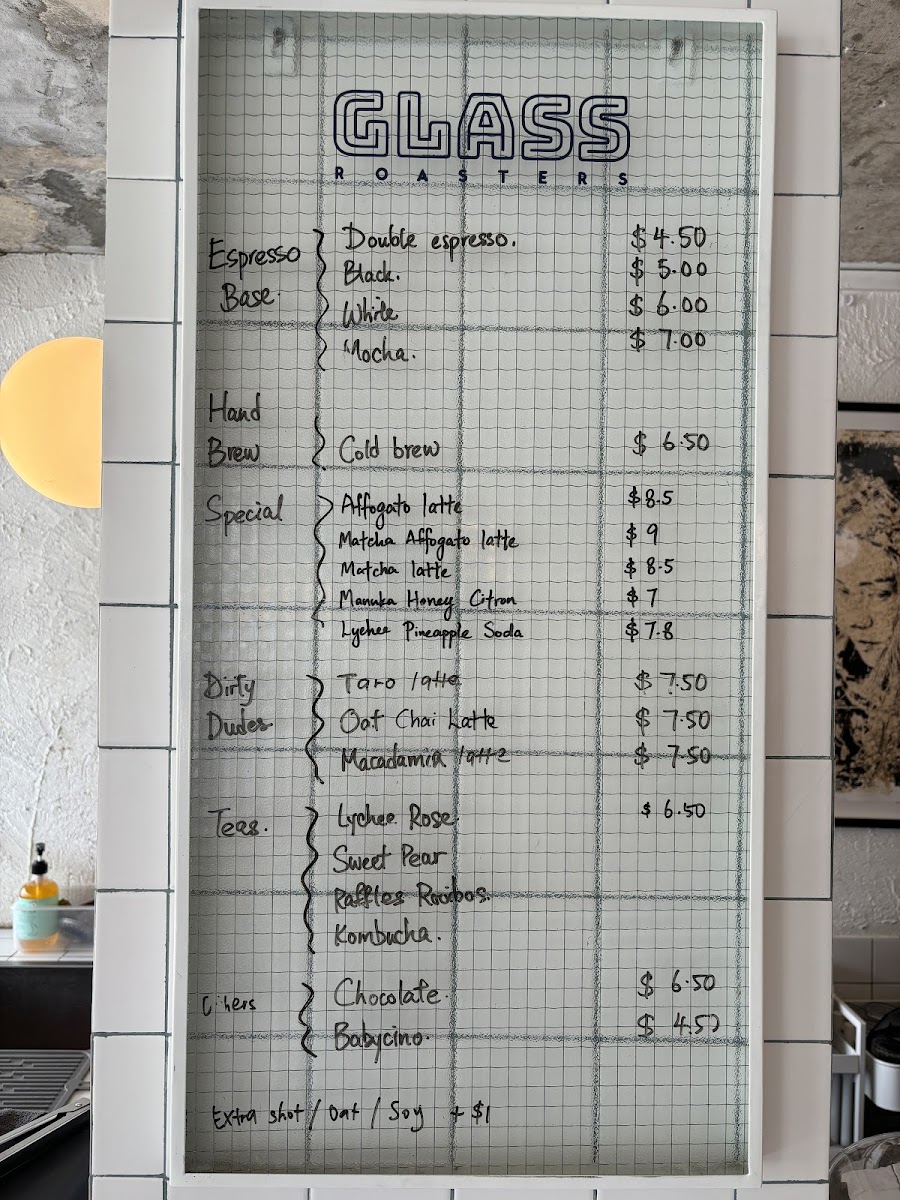 GLASS
ROASTERS
Espresso Base.
Double espresso. $4.50
Black. $ 5.00
White $ 6.00
Mocha. $ 7.00
Hand Brew
Cold brew $ 6.50
Special
Affogato latte $8.5
Matcha Affogato latte $ 9
Matcha latte $ 8.5
Manuka Honey Citron $ 7
Lychee Pineapple Soda $ 7.8
Dirty Dudes
Taro latte $ 7.50
Oat Chai Latte $ 7.50
Macadamia latte $ 7.50
Teas.
Lychee Rose $ 6.50
Sweet Pear
Raffles Rooibos.
Kombucha.
Others
Chocolate. $ 6.50
Babycino. $ 4.50
Extra shot / Oat / Soy + $1